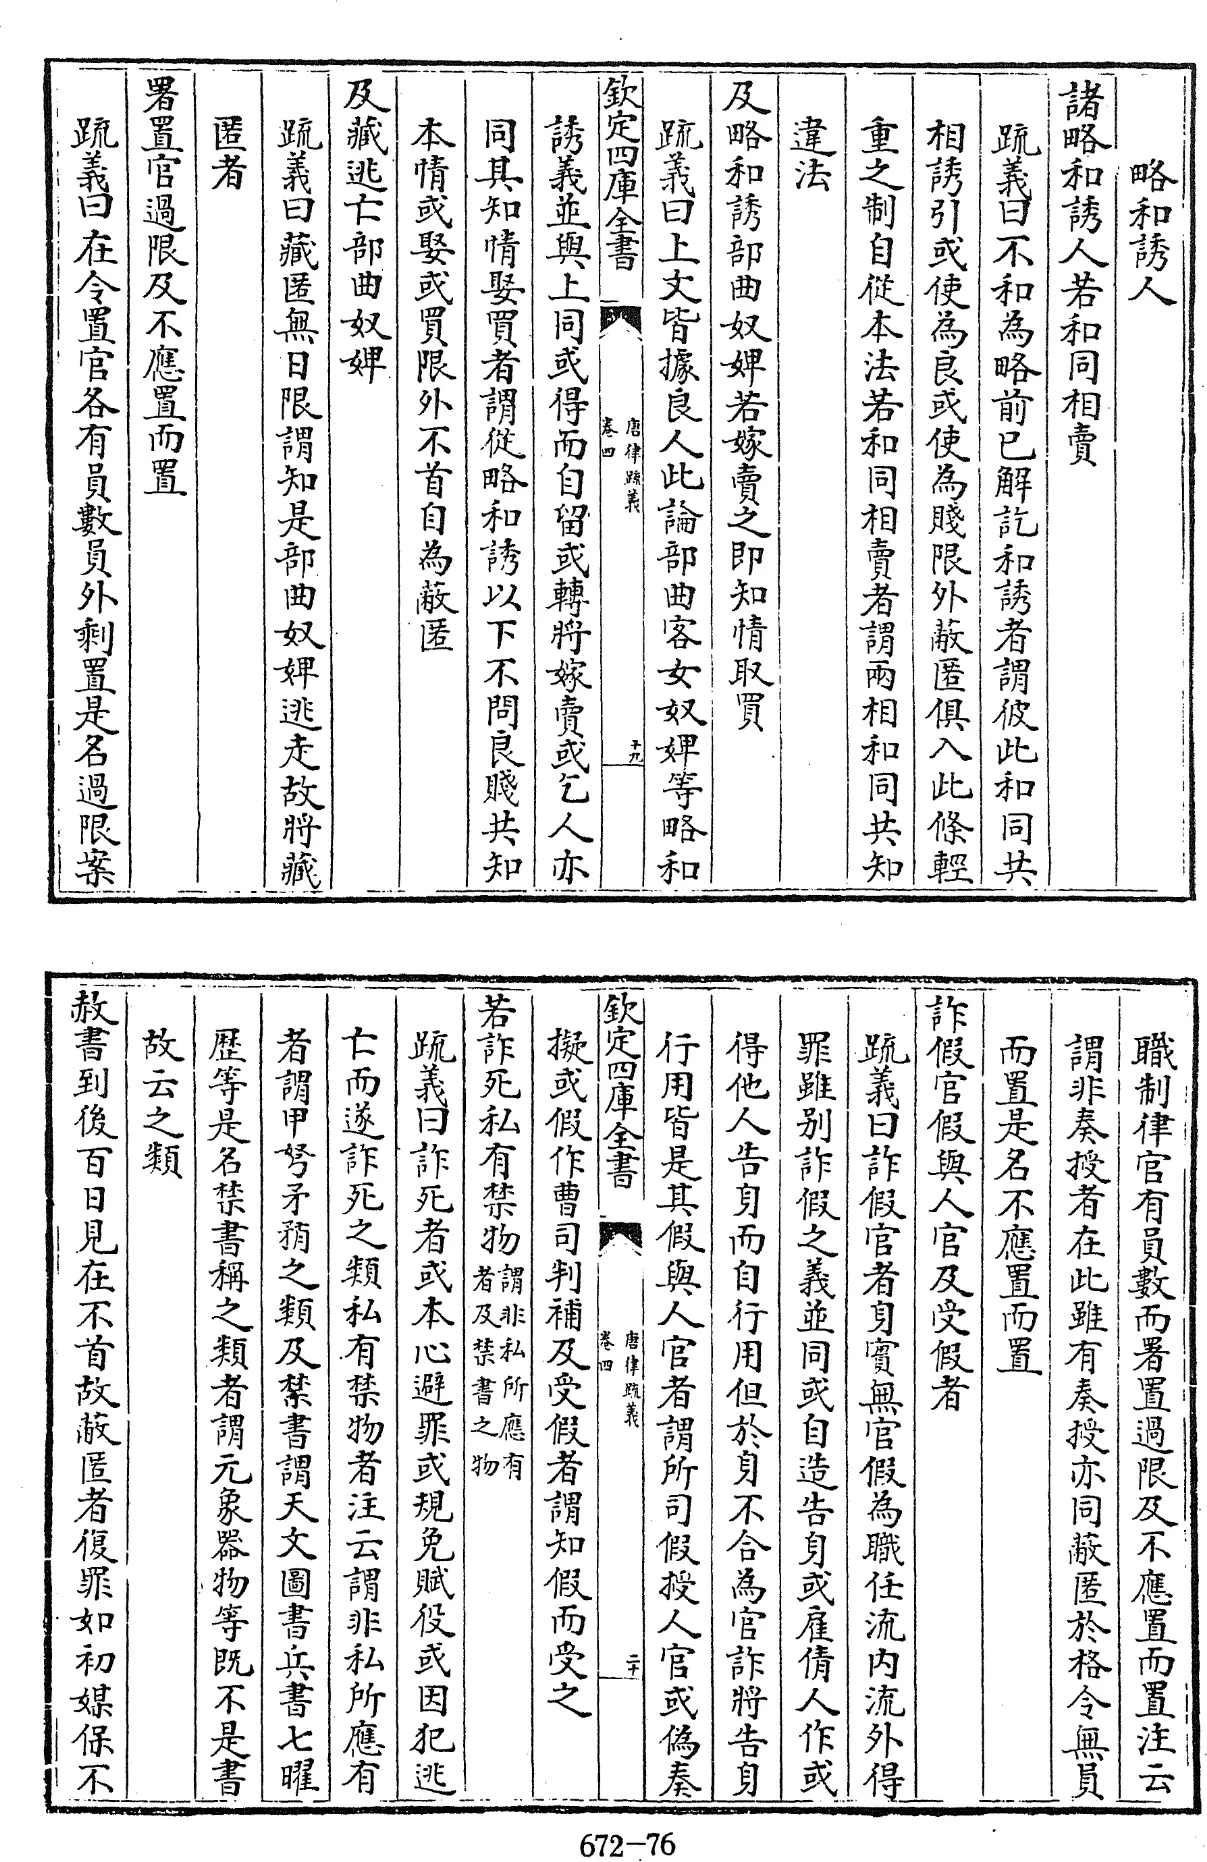 略和誘人
諸略和誘人若和同相賣
疏義曰不和為略前已解訖和誘者謂彼此和同共
相誘引或使為良或使為賤限外蔽匿俱入此條輕
重之制自從本法若和同相賣者謂兩相和同共知
違法
及略和誘部曲奴婢若嫁賣之即知情取買
疏義曰上文皆據良人此論部曲客女奴婢等略和
欽定四庫全書
唐律疏義
卷四
十九
誘義並與上同或得而自留或轉將嫁賣或乞人亦
同其知情娶買者謂從略和誘以下不問良賤共知
本情或娶或買限外不首自為蔽匿
及藏逃亡部曲奴婢
疏義曰藏匿無日限謂知是部曲奴婢逃走故將藏
匿者
署置官過限及不應置而置
疏義曰在令置官各有員數員外剩置是名過限案
職制律官有員數而署置過限及不應置而置注云
謂非奏授者在此雖有奏授亦同蔽匿於格令無員
而置是名不應置而置
詐假官假與人官及受假者
疏義曰詐假官者身實無官假為職任流内流外得
罪雖别詐假之義並同或自造告身或雇倩人作或
得他人告身而自行用但於身不合為官詐將告身
行用皆是其假與人官者謂所司假授人官或偽奏
欽定四庫全書
唐律疏義
卷四
二十
擬或假作曹司判補及受假者謂知假而受之
若詐死私有禁物謂非私所應有者及禁書之物
疏義曰詐死者或本心避罪或規免賦役或因犯逃
亡而遂詐死之類私有禁物者注云謂非私所應有
者謂甲弩矛矟之類及禁書謂天文圖書兵書七曜
歷等是名禁書稱之類者謂元象器物等既不是書
故云之類
赦書到後百日見在不首故蔽匿者復罪如初媒保不
672-76